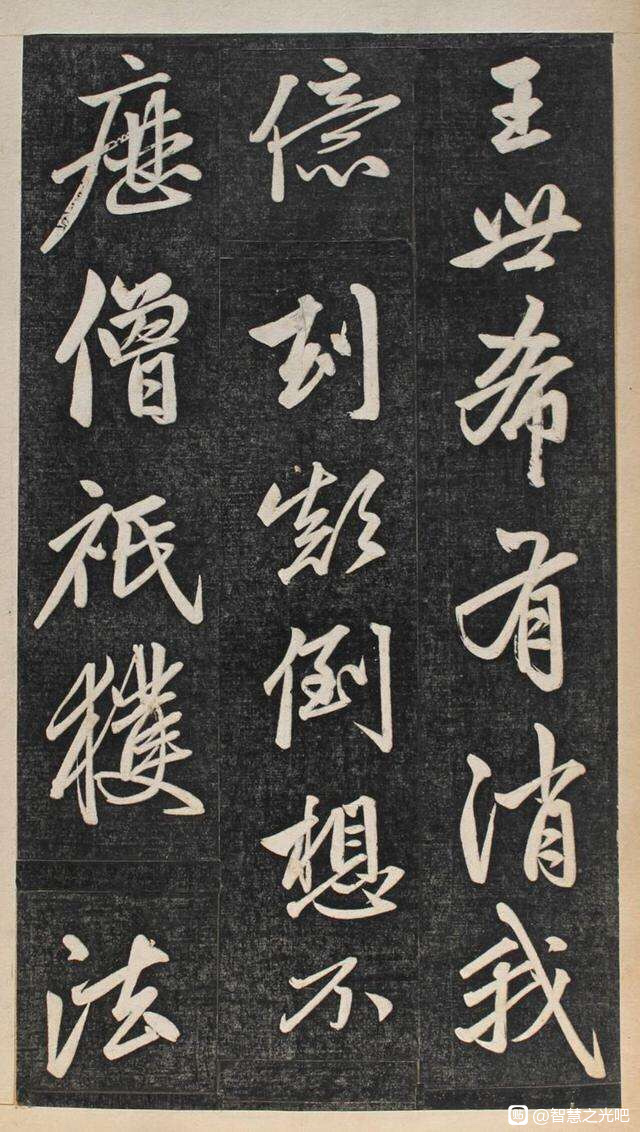 王世希有消我
億劫顛倒想不
歷僧祇獲法
@智慧之光吧